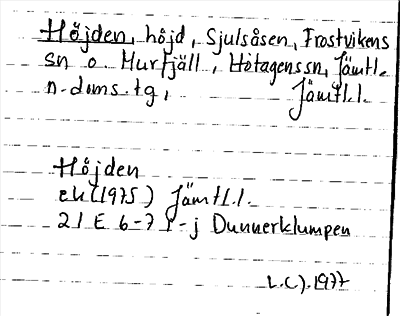 Höjden, höjd, Sjulsåsen, Frostvikens
sn o. Murfjäll, Hotagens sn, Jämtl.
n. doms. tg, Jämtl. l.
Höjden
ek (1975) Jämtl. l.
21 E 6-7 i-j Dunnerklumpen
L.C). 1977